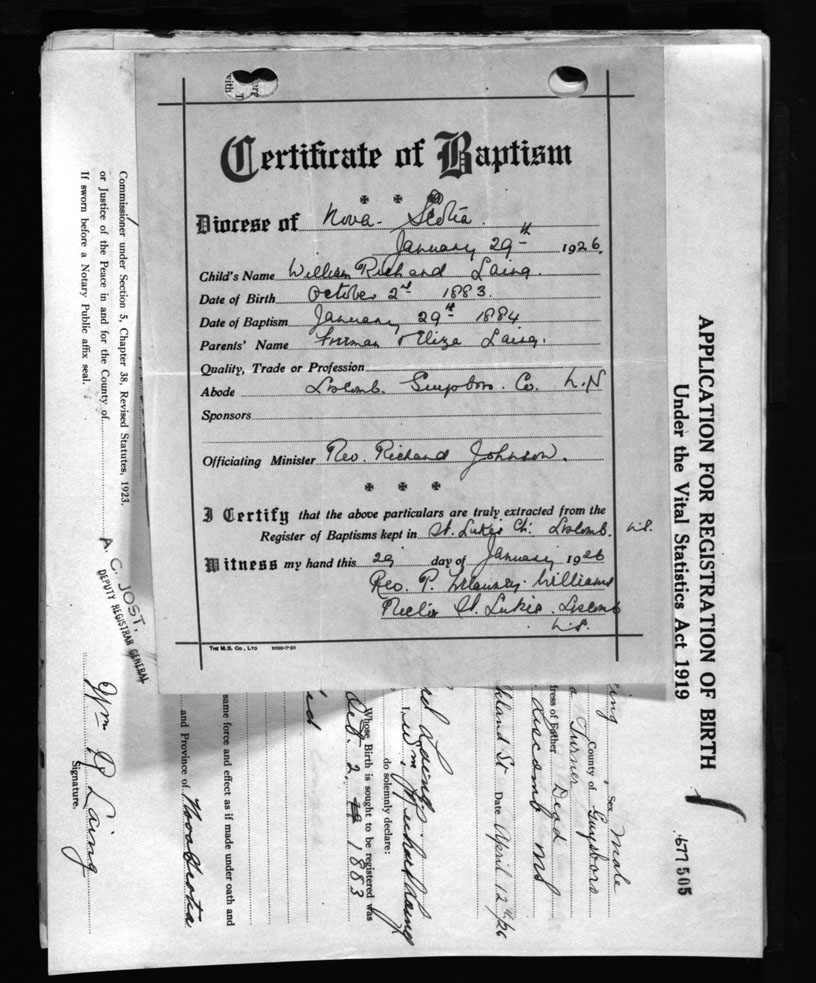 Certificate of Baptism
Diocese of Nova-Scotia.
January 29th 1926.
Child's Name William Richard Laing.
Date of Birth October 2nd 1883.
Date of Baptism January 29th 1884
Parents' Name Freeman & Eliza Laing.
Quality, Trade or Profession
Abode Liscomb. Co. N.S
Sponsors
Officiating Minister Rev. Richard Johnson.
I Certify that the above particulars are truly extracted from the
Register of Baptisms kept in St. Luke's Ch. Liscomb. N.S.
Witness my hand this 29 day of January 1926
Rev. P. Williams
St. Luke's. Liscomb
N.S.
THE M.S. CO., LTD
with T
APPLICATION FOR REGISTRATION OF BIRTH
Under the Vital Statistics Act 1919
677505
ing Sex Male
County of Guysboro
Turner
ress of Father Dead
Liscomb NS
kland St Date April 12th/26
rd Laing
I, Wm Richard Laing
do solemnly declare:
Whose Birth is sought to be registered was
Oct. 2, 1883
same force and effect as if made under oath and
and Province of Nova Scotia
Wm R Laing
Signature.
A. C. JOST,
DEPUTY REGISTRAR GENERAL
Commissioner under Section 5, Chapter 38, Revised Statutes, 1923.
or Justice of the Peace in and for the County of
If sworn before a Notary Public affix seal.